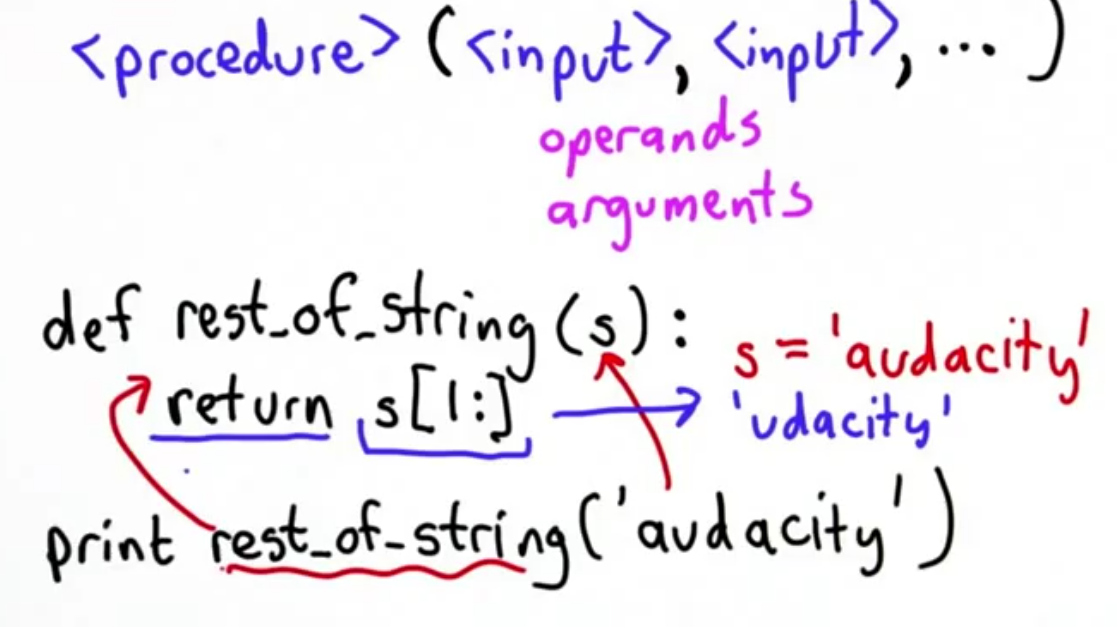 <procedure> (<input>, <input>, ... )
operands
arguments
def rest_of_string (s) :
s = 'audacity'
return s[1:]
'udacity'
print rest_of_string('audacity')